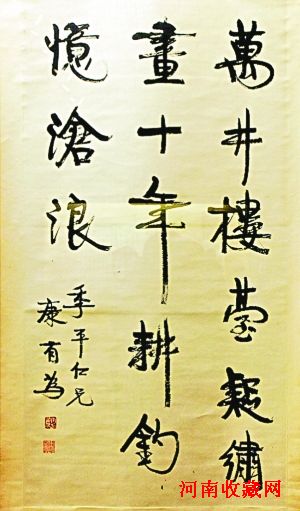 萬井樓臺疑繡
畫十年耕釣
憶滄浪
季平仁兄
康有為
河南收藏网